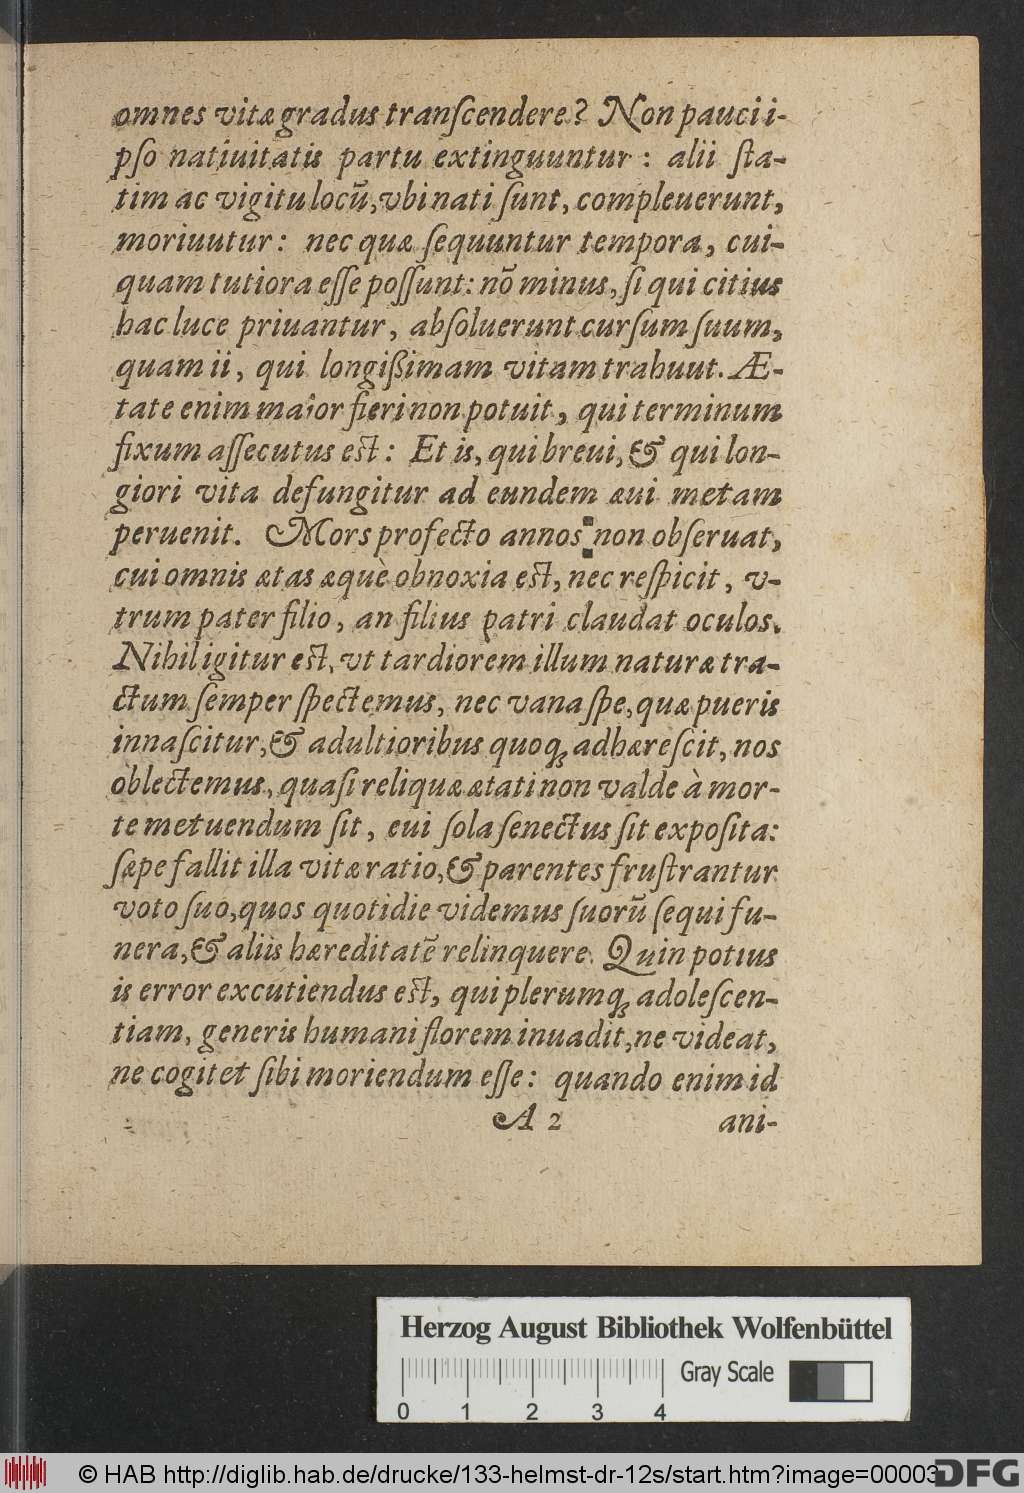 omnes vitæ gradus tranſcendere? Non pauci i-
pſo natiuitatis partu extinguuntur: alii ſta-
tim ac vigitu locū, vbi nati ſunt, compleuerunt,
moriuutur: nec quæ ſequuntur tempora, cui-
quam tutiora eſſe poſſunt: nō minus, ſi qui citius
hac luce priuantur, abſoluerunt curſum ſuum,
quam ii, qui longißimam vitam trahuut. Æ-
tate enim maior fieri non potuit, qui terminum
fixum aſſecutus eſt: Et is, qui breui, & qui lon-
giori vita defungitur ad eundem æui metam
peruenit. Mors profecto annos non obſeruat,
cui omnis ætas æquè obnoxia eſt, nec reſpicit, v-
trum pater filio, an filius patri claudat oculos.
Nihil igitur eſt, vt tardiorem illum naturæ tra-
ctum ſemper ſpectemus, nec vana ſpe, quæ pueris
innaſcitur, & adultioribus quoq; adhæreſcit, nos
oblectemus, quaſi reliquæ ætati non valde à mor-
te metuendum ſit, eui ſola ſenectus ſit expoſita:
ſæpe fallit illa vitæ ratio, & parentes fruſtrantur
voto ſuo, quos quotidie videmus ſuorū ſequi fu-
nera, & aliis hæreditatē relinquere. Quin potius
is error excutiendus eſt, qui plerumq; adoleſcen-
tiam, generis humani florem inuadit, ne videat,
ne cogitet ſibi moriendum eſſe: quando enim id
A 2 ani-
Herzog August Bibliothek Wolfenbüttel
Gray Scale
0 1 2 3 4
© HAB http://diglib.hab.de/drucke/133-helmst-dr-12s/start.htm?image=00003
DFG